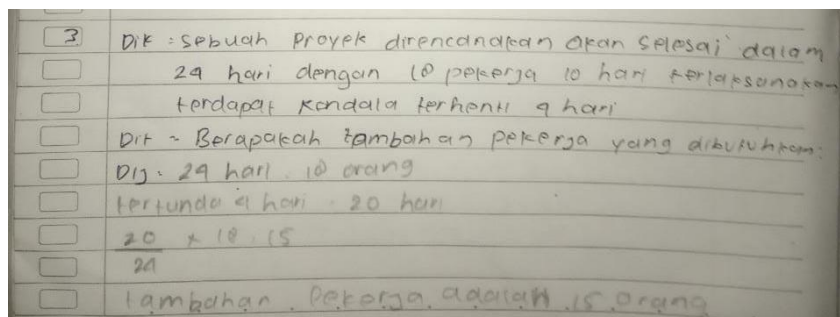 3 Dik : Sebuah Proyek direncanakan akan Selesai dalam
24 hari dengan 18 pekerja 10 hari terlaksanakan
terdapat kendala terhenti 4 hari
Dit = Berapakah tambahan pekerja yang dibutuhkan:
Dij : 24 hari . 18 orang
tertunda 4 hari : 20 hari
20 × 18 . 15
24
tambahan . Pekerja. adalah .15. orang